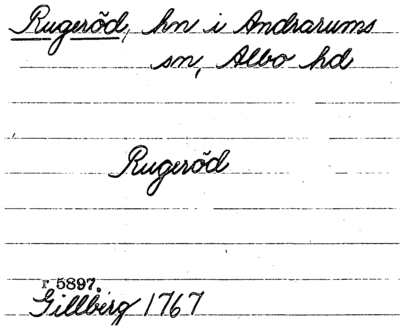 Rugeröd, hn i Andrarums
sn, Albo hd
Rugeröd
r 5897.
Gillberg 1767